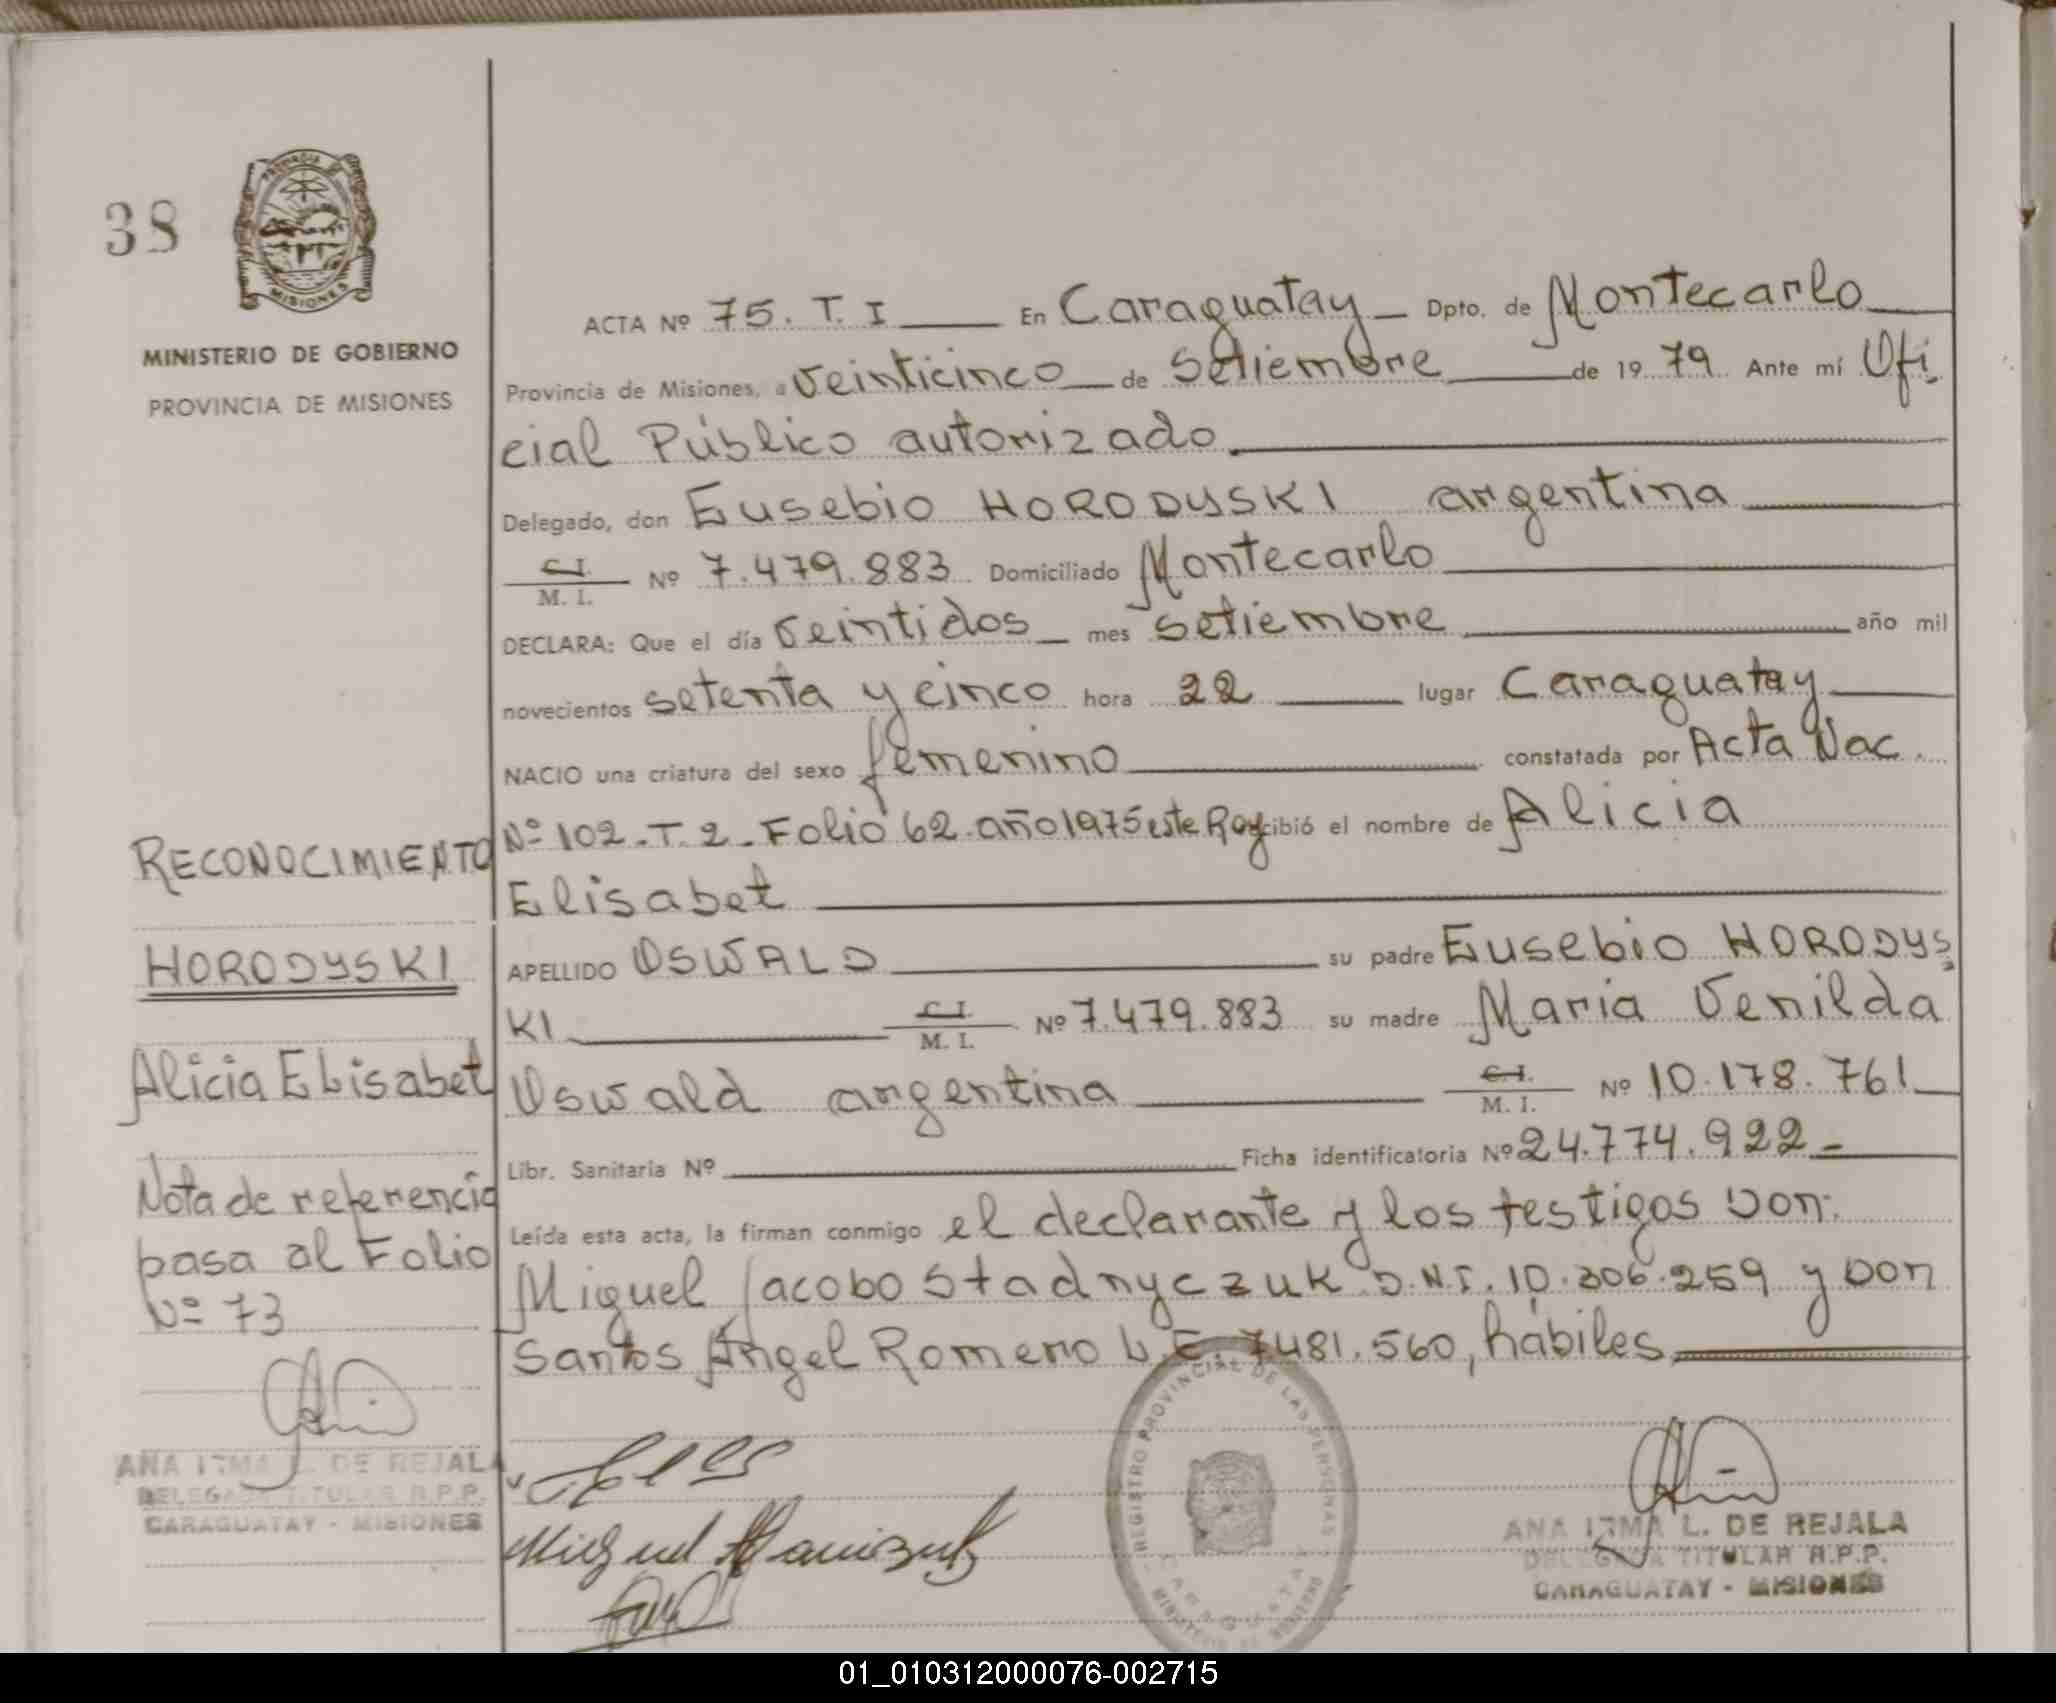 38
PROVINCIA DE
MISIONES
MINISTERIO DE GOBIERNO
PROVINCIA DE MISIONES
ACTA Nº 75. T. I En Caraguatay Dpto. de Montecarlo
Provincia de Misiones, a veinticinco de Setiembre de 1979 Ante mí Ofi
cial Público autorizado
Delegado, don Eusebio HORODYSKI argentina
C.I.
M. I. Nº 7.479.883 Domiciliado Montecarlo
DECLARA: Que el día veintidos mes setiembre año mil
novecientos setenta y cinco hora 22 lugar Caraguatay
NACIO una criatura del sexo femenino constatada por Acta Nac.
Nº 102. T. 2. Folio 62 año 1975 este Reg cibió el nombre de Alicia
Elisabet
APELLIDO OSWALD su padre Eusebio HORODYS
KI C.I.
M. I. Nº 7.479.883 su madre Maria Venilda
Oswald argentina C.I.
M. I. Nº 10.178.761
Libr. Sanitaria Nº Ficha identificatoria Nº 24.774.922
Leída esta acta, la firman conmigo el declarante y los testigos Don:
Miguel Jacobo Stadnyczuk D.N.I. 10.306.259 y Don
Santos Ángel Romero L.E. 7481.560, hábiles
RECONOCIMIENTO
HORODYSKI
Alicia Elisabet
Nota de referencia
pasa al Folio
Nº 73
ANA IRMA L. DE REJALA
DELEGADA TITULAR R.P.P.
CARAGUATAY - MISIONES
Miguel
REGISTRO PROVINCIAL DE LAS PERSONAS
CARAGUATAY
MINISTERIO DE GOBIERNO
ANA IRMA L. DE REJALA
DELEGADA TITULAR R.P.P.
CARAGUATAY - MISIONES
01_010312000076-002715